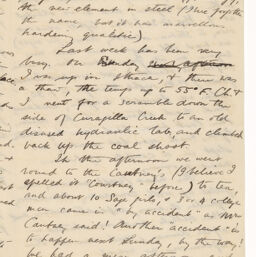 the new element in steel (I've forgotten
the name, but it has marvellous
hardening qualities).
Last week has been very
busy. On Sunday
I was up in Ithaca, & there was
a thaw, the temp up to 55° F. Ch. &
I went for a scramble down the
side of Cascadilla Creek to an old
disused hydraulic lab, and climbed
back up the coal shoot.
In the afternoon we went
round to the Cautneys, (I believe I
spelled it "Courtney" before) to tea,
and about 10 Sage girls, & 3 or 4 college
men came in "by accident" as Mrs
Cautney said! Another "accident" is
to happen next Sunday, by the way!
We had a